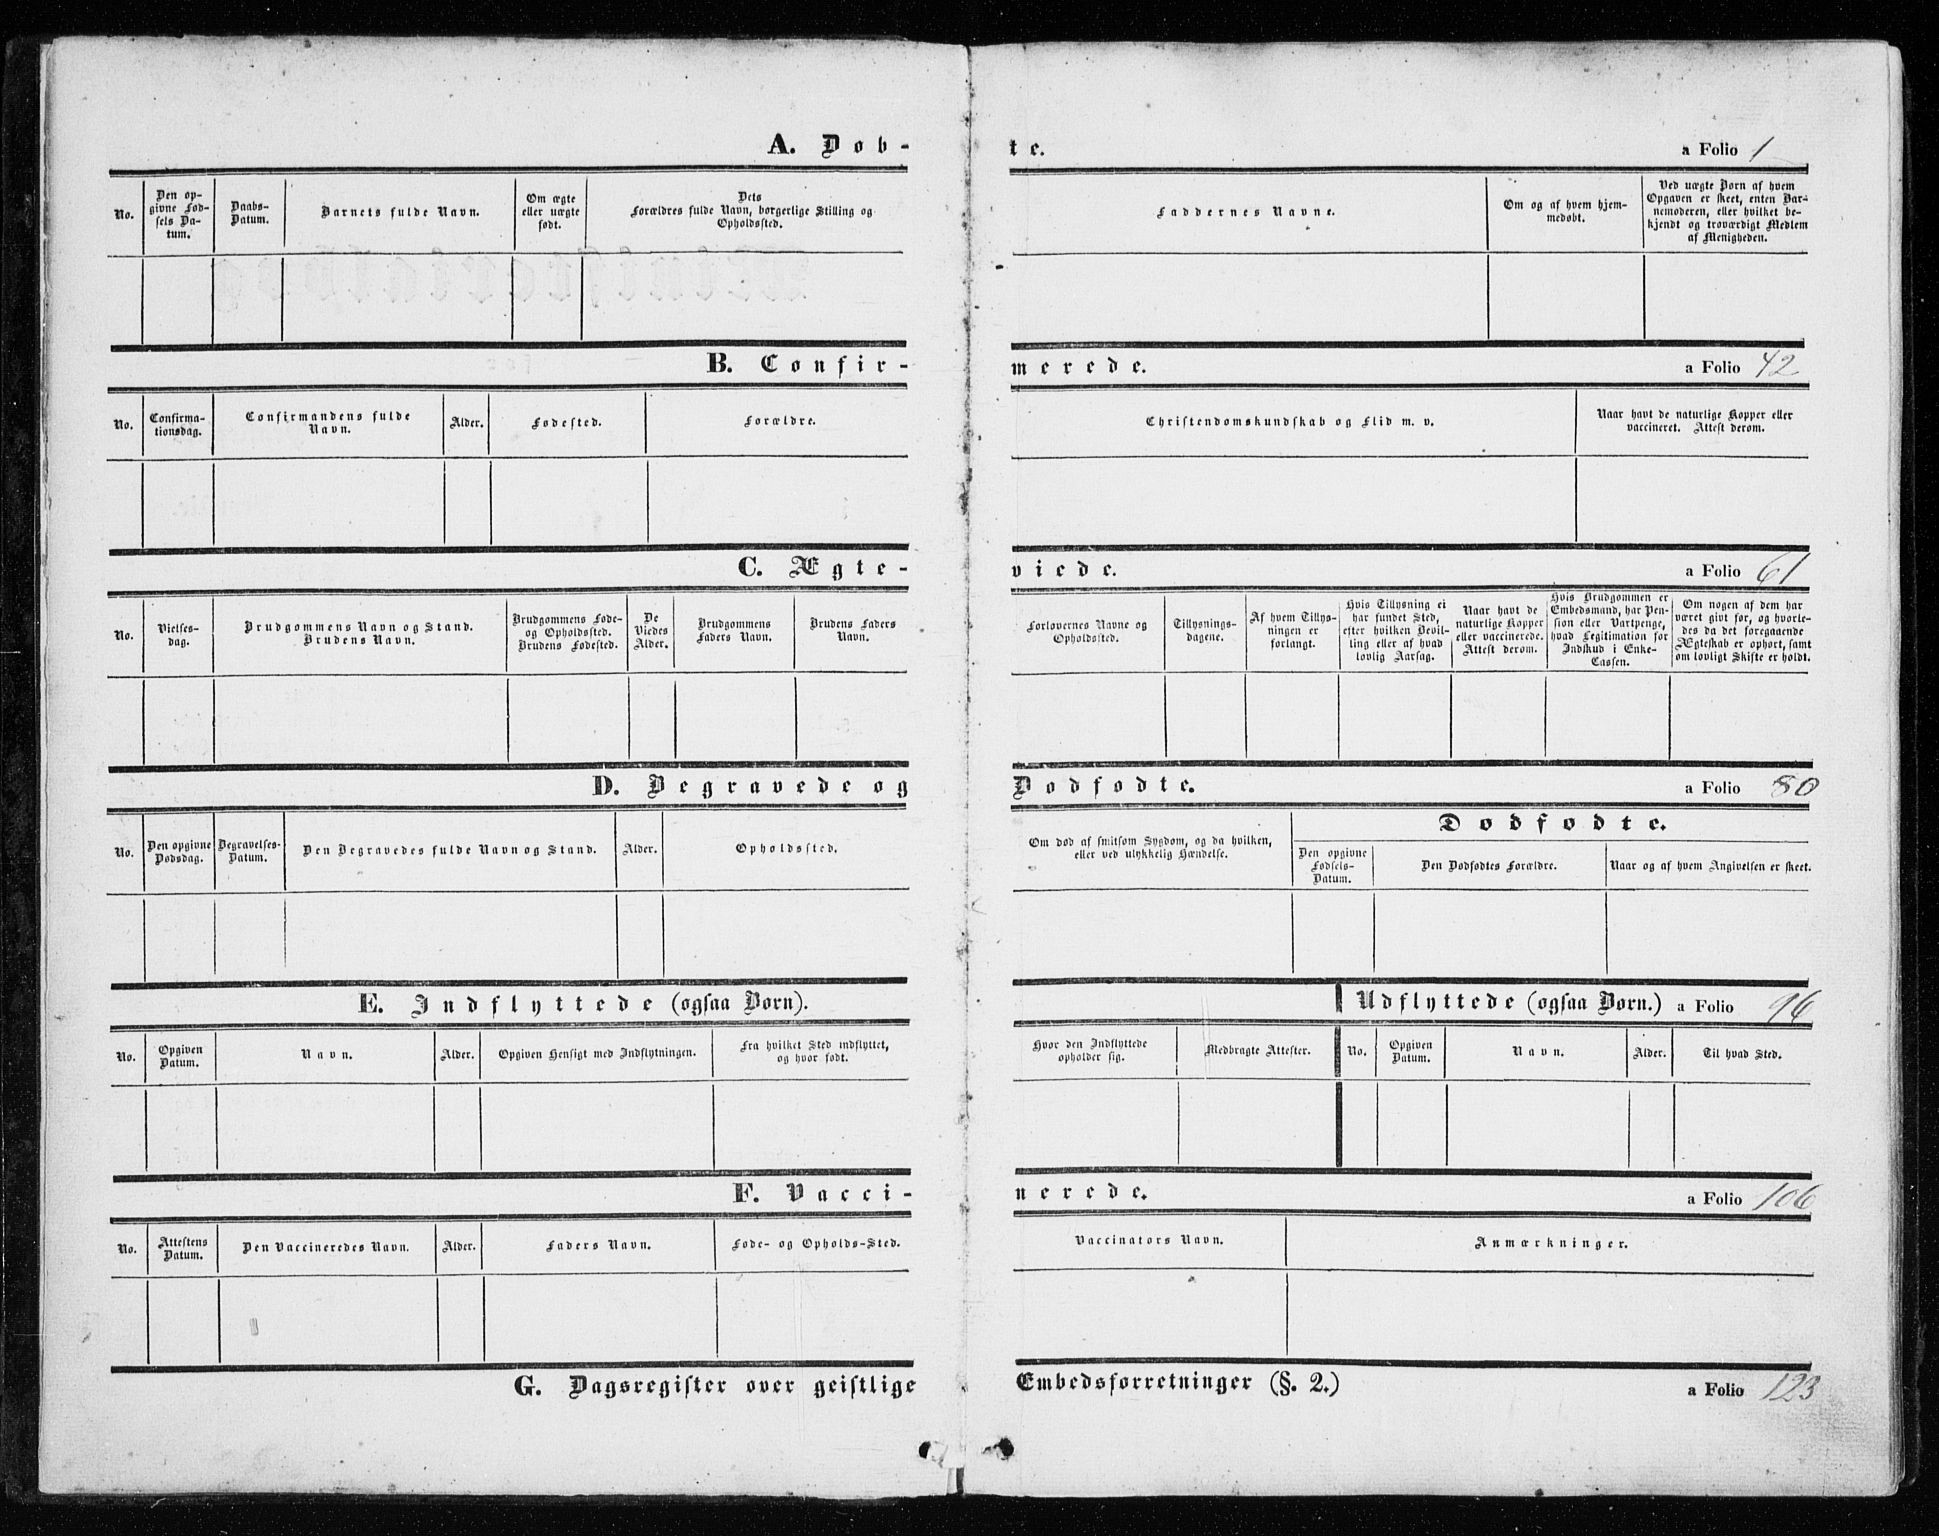 A. Døb-te. a Folio 1
No.
Den op-
givne Fød-
sels Da-
tum.
Daabs-
Datum.
Barnets fulde Navn.
Om ægte
eller uægte
født.
Dets
Forældres fulde Navn, borgerlige Stilling og
Opholdssted.
Faddernes Navne.
Om og af hvem hjem-
medøbt.
Ved uægte Børn af hvem
Opgaven er skeet, enten Bar-
nemoderen, eller hvilket be-
kjendt og troværdigt Medlem
af Menigheden.
B. Confir-merede. a Folio 42
No.
Confirma-
tionsdag.
Confirmandens fulde
Navn.
Alder.
Fødested.
Forældre.
Christendomskundskab og Flid m. v.
Naar havt de naturlige Kopper eller
vaccineret. Attest derom.
C. Ægte-viede. a Folio 61
No.
Vielses-
dag.
Brudgommens Navn og Stand.
Brudens Navn.
Brudgommens Føde-
og Opholdssted.
Brudens Fødested.
De
Viedes
Alder.
Brudgommens
Faders Navn.
Brudens Faders
Navn.
Forlovernes Navne og
Opholdssted.
Tillysnings-
dagene.
Af hvem Tillys-
ningen er
forlangt.
Hvis Tillysning ei
har fundet Sted,
efter hvilken Bevil-
ling eller af hvad
lovlig Aarsag.
Naar havt de
naturlige Kopper
eller vaccinerede.
Attest derom.
Hvis Brudgommen er
Embedsmand, har Pen-
sion eller Vartpenge,
hvad Legitimation for
Indskud i Enke-
Cassen.
Om nogen af dem har
været givt før, og hvorle-
des da det foregaaende
Ægteskab er ophørt, samt
om lovligt Skifte er holdt.
D. Begravede og Dødfødte. a Folio 80
No.
Den opgivne
Dødsdag.
Begravelses-
Datum.
Den Begravedes fulde Navn og Stand.
Alder.
Opholdssted.
Om død af smitsom Sygdom, og da hvilken,
eller ved ulykkelig Hændelse.
Dødfødte.
Den opgivne
Fødsels-
Datum.
Den Dødfødtes Forældre.
Naar og af hvem Angivelsen er skeet.
E. Indflyttede (ogsaa Børn). Udflyttede (ogsaa Børn.) a Folio 96
No.
Opgiven
Datum.
Navn.
Alder.
Opgiven Hensigt med Indflytningen.
Fra hvilket Sted indflyttet,
og hvor født.
Hvor den Indflyttede
opholder sig.
Medbragte Attester.
No.
Opgiven
Datum.
Navn.
Alder.
Til hvad Sted.
F. Vacci-nerede. a Folio 106
No.
Attestens
Datum.
Den Vaccineredes Navn.
Alder.
Faders Navn.
Føde- og Opholds-Sted.
Vaccinators Navn.
Anmærkninger.
G. Dagsregister over geistlige Embedsforretninger (§. 2.) a Folio 123